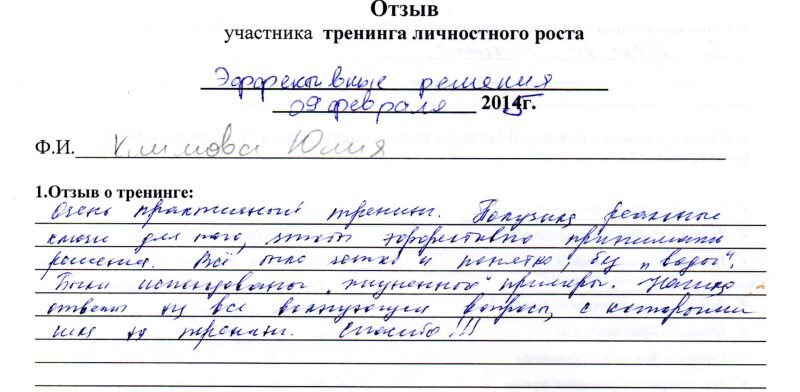 Отзыв
участника тренинга личностного роста
Эффективные решения
09 февраля 2015г.
Ф.И. Климова Юлия
1.Отзыв о тренинге:
Очень практичный тренинг. Получила реальные
ключи для того, чтобы эффективно принимать
решения. Всё было четко и понятно, без "воды".
Были использованы "жизненные" примеры. Нашла
ответы на все волнующие вопросы, с которыми
шла на тренинг. Спасибо!!!